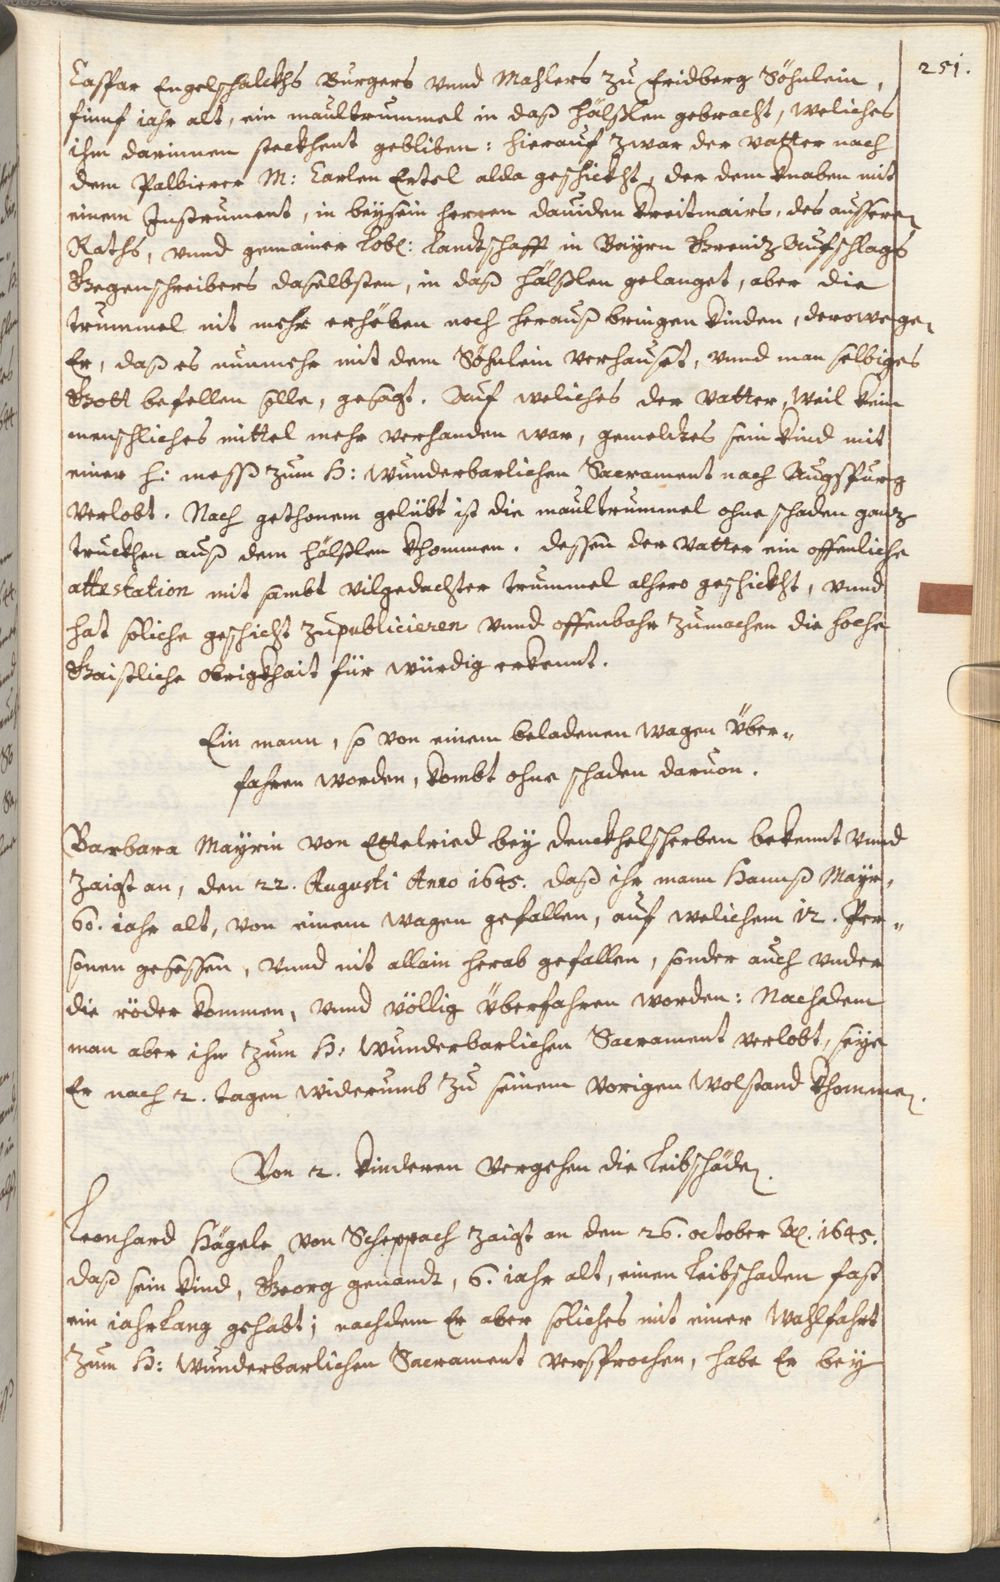 251.
Caspar Engelschalckhs Burgers vnnd Mahlers zu Fridberg Söhnlein,
fünf iahr alt, ein maultrummel in daß hälßlen gebracht, weliches
ihm darinnen steckhent gebliben: hierauf zwar der vatter nach
dem Palbierer M: Carlen Ertel alda geschickht, der dem knaben mit
einem Instrument, in beÿsein herren dauiden Kreitmairs, des aussern
Raths, vnnd gemainer Lobl: Landtschafft in Baÿrn Grenitz Aufschlags
Gegenschreibers daselbsten, in daß hälßlen gelanget, aber die
trummel nit mehr erhöben noch herauß bringen kinden, derowegen
Er, daß es nunmehr mit dem Söhnlein verhauset, vnnd man selbiges
Gott befellen solle, gesagt. Auf weliches der vatter, weil kein
menschliches mittel mehr verhanden war, gemeldtes sein kind mit
einer h: messß zum H: wunderbarlichen Sacrament nach Augspurg
verlobt. Nach gethonem gelübt ist die maultrummel ohne schaden gantz
truckhen auß dem hälßlen khommen. dessen der vatter ein offenliche
attestation mit sambt vilgedachter trummel alhero geschickht, vnnd
hat soliche geschicht zupublicieren vnnd offenbahr zumachen die hoche
Gaistliche obrigkhait für würdig erkennt.
Ein mann, so von einem beladenen wagen über-
fahren worden, kombt ohne schaden daruon.
Barbara Maÿrin von Ettelried beÿ denckhelscherben bekennt vnnd
zaigt an, den 22. Augusti Anno 1645. daß ihr mann Hannß Maÿr,
60. iahr alt, von einem wagen gefallen, auf welichem 12. Per-
sonen gesessen, vnnd nit allain herab gefallen, sonder auch vnder
die röder kommen, vnnd völlig überfahren worden: Nachdem
man aber ihn zum H: wunderbarlichen Sacrament verlobt, seÿe
Er nach 2. tagen widerumb zu seinem vorigen wolstand khommen.
Von 2. kinderen vergehen die Leibschäden.
Leonhard Hägele von Scheppach zaigt an den 26. october Ao. 1645.
daß sein kind, Georg genandt, 6. iahr alt, einen Leibschaden fast
ein iahrlang gehabt; nachdem Er aber soliches mit einer Wahlfahrt
zum H: wunderbarlichen Sacrament versprochen, habe Er beÿ